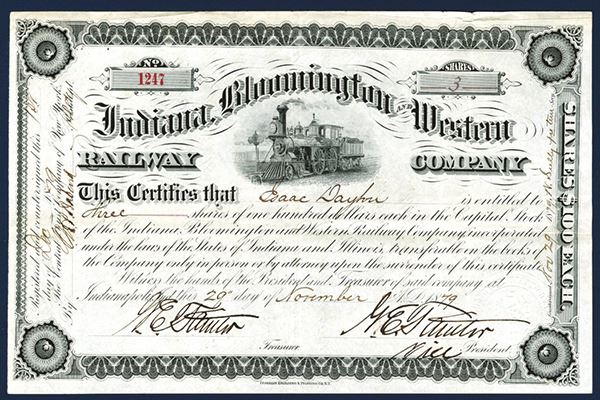 No
1247
SHARES
3
Indiana, Bloomington AND Western
RAILWAY COMPANY
This Certifies that Isaac Dayton is entitled to
three shares of one hundred dollars each in the Capital Stock
of the Indiana, Bloomington and Western Railway Company incorporated
under the laws of the States of Indiana and Illinois, transferable on the books of
the Company only in person or by attorney upon the surrender of this certificate.
Witness the hands of the President and Treasurer of said company at
Indianapolis this 29 day of November 1879
Treasurer. Vice President.
SHARES $100 EACH